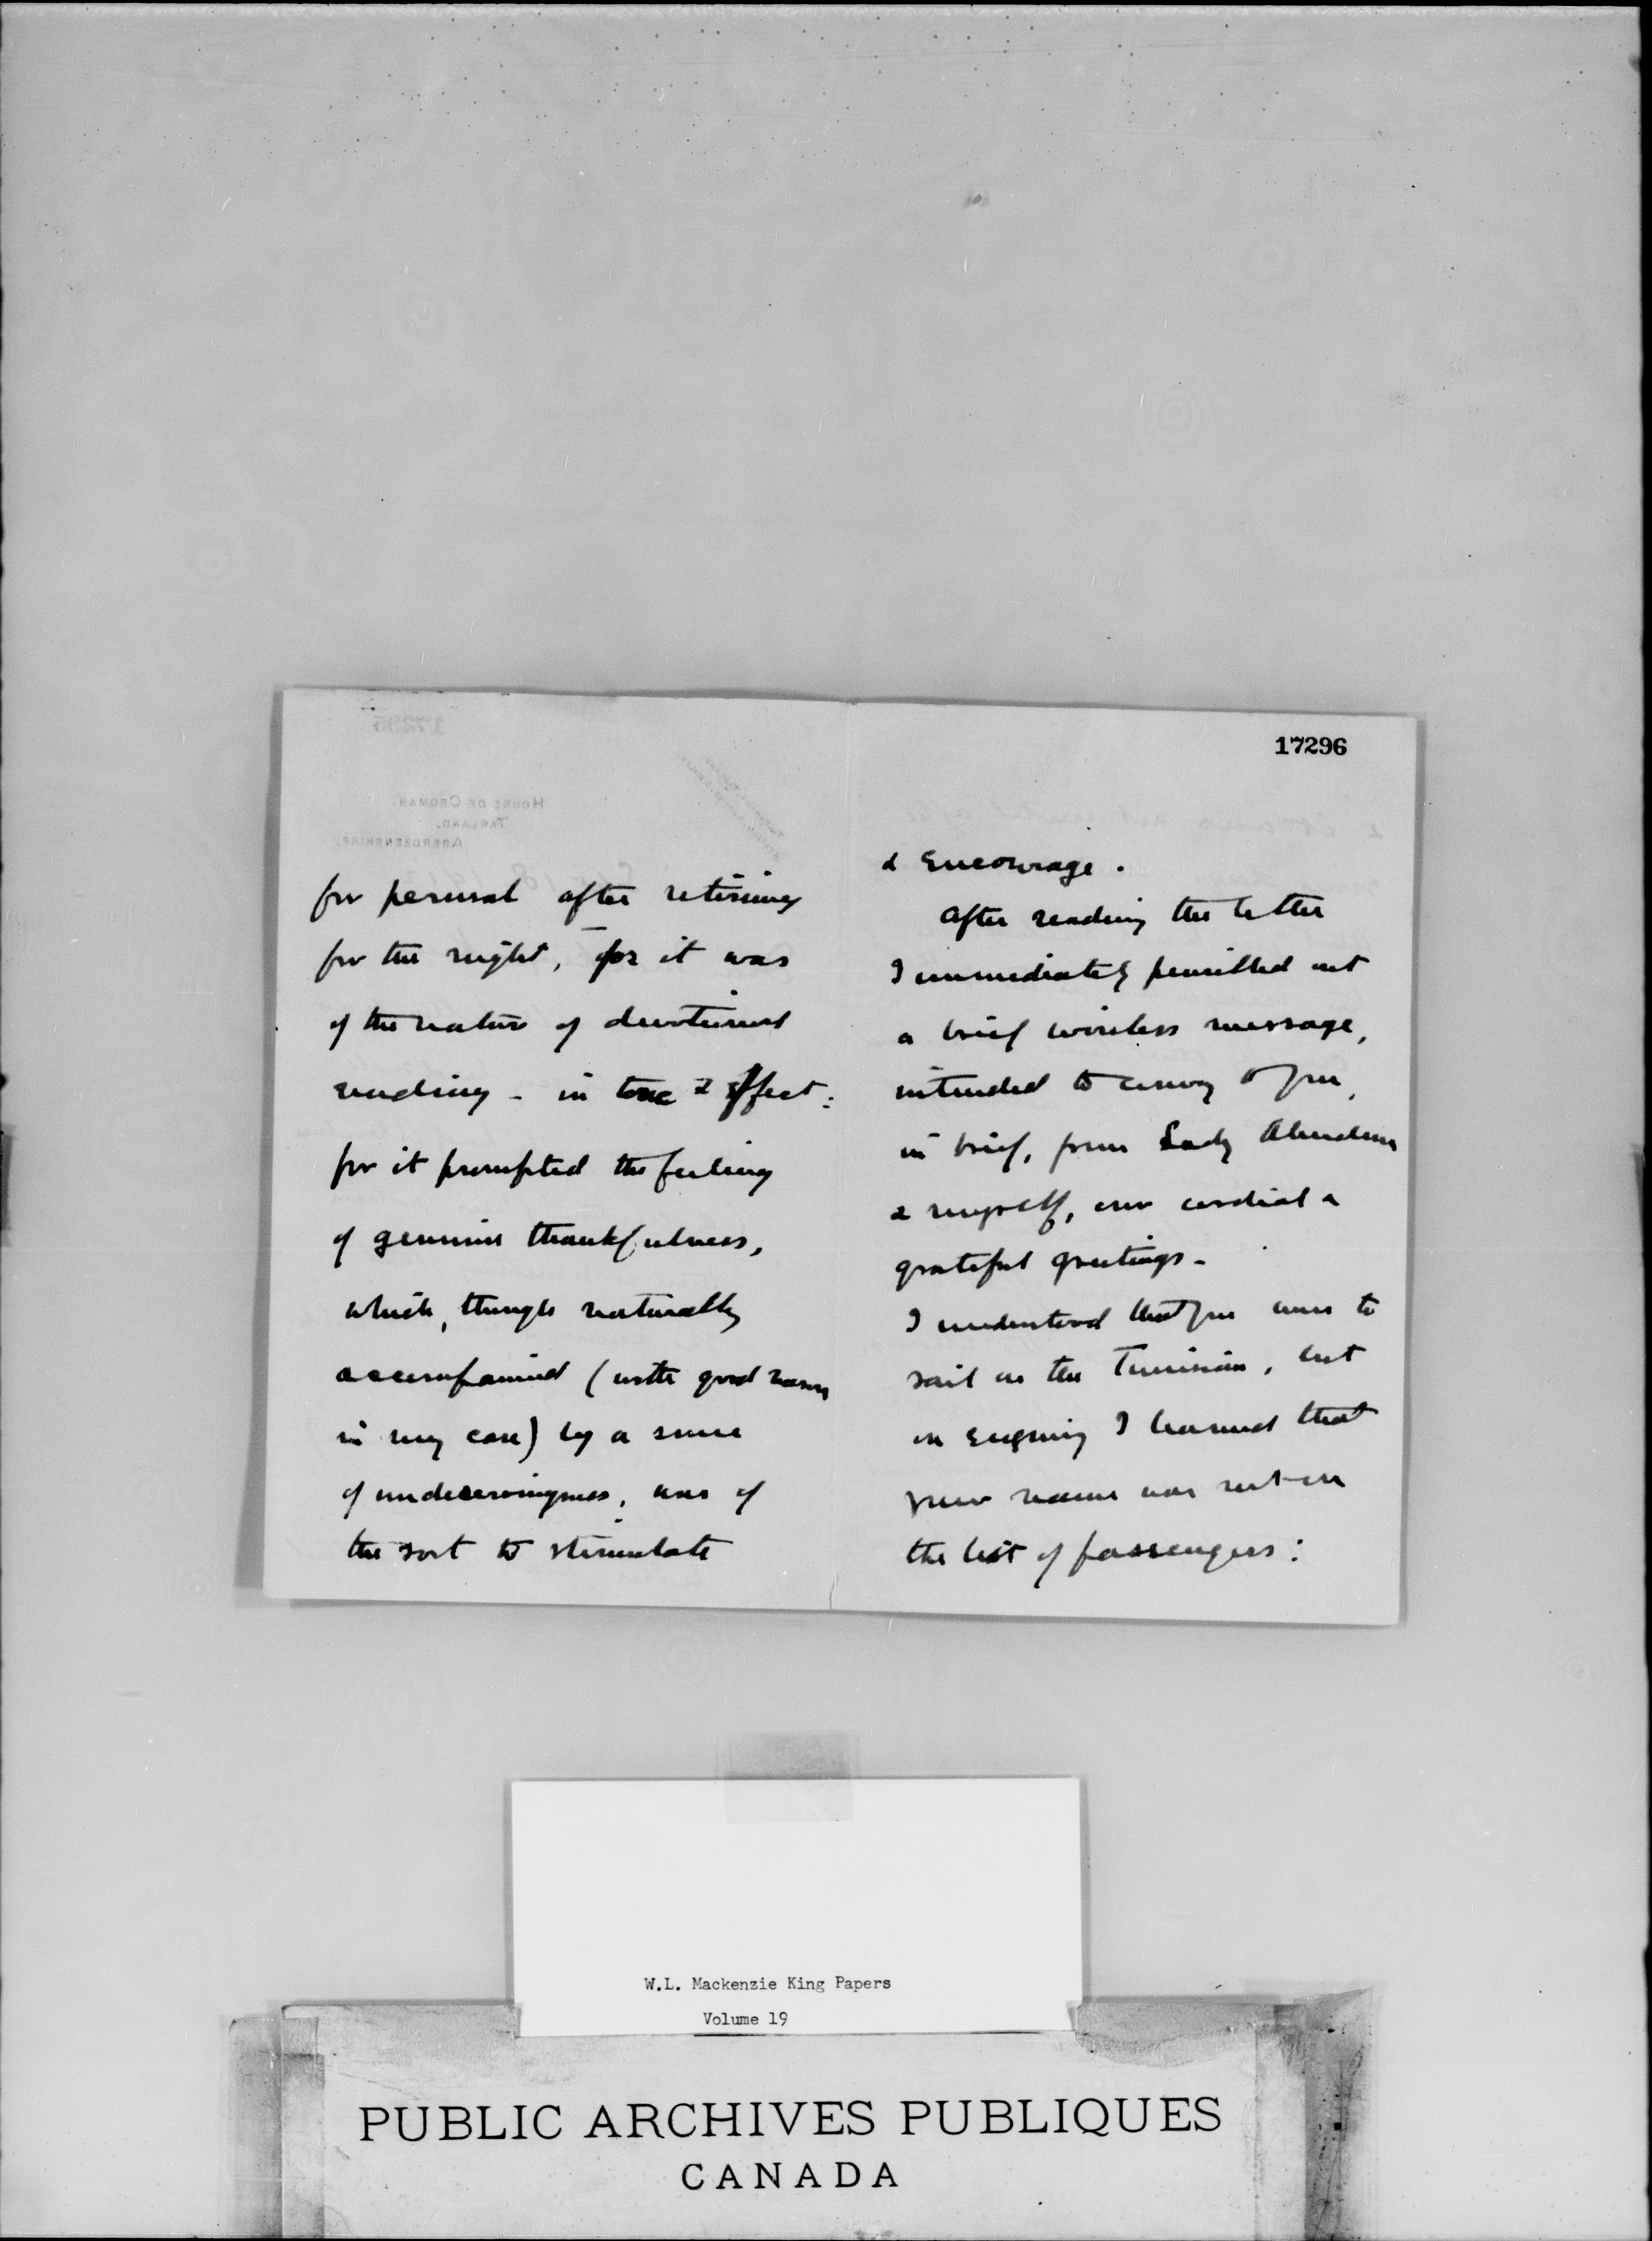 17296
for perusal after retiring
for the night, for it was
of the nature of devotional
reading - in tone & effect:
for it prompted the feeling
of genuine thankfulness,
which, though naturally
accompanied (with good reason
in my case) by a sense
of undeservingness, was of
the sort to stimulate
& encourage.
After reading the letter
I immediately pencilled out
a brief wireless message,
intended to convey to you,
in brief, from Lady Aberdeen
& myself, our cordial &
grateful greetings -
I understood that you were to
sail on the Tunisian, but
on enquiry I learned that
your name was not on
the list of passengers:
HOUSE OF CROMAR.
TARLAND.
ABERDEENSHIRE.
17295
W.L. Mackenzie King Papers
Volume 19
PUBLIC ARCHIVES PUBLIQUES
CANADA